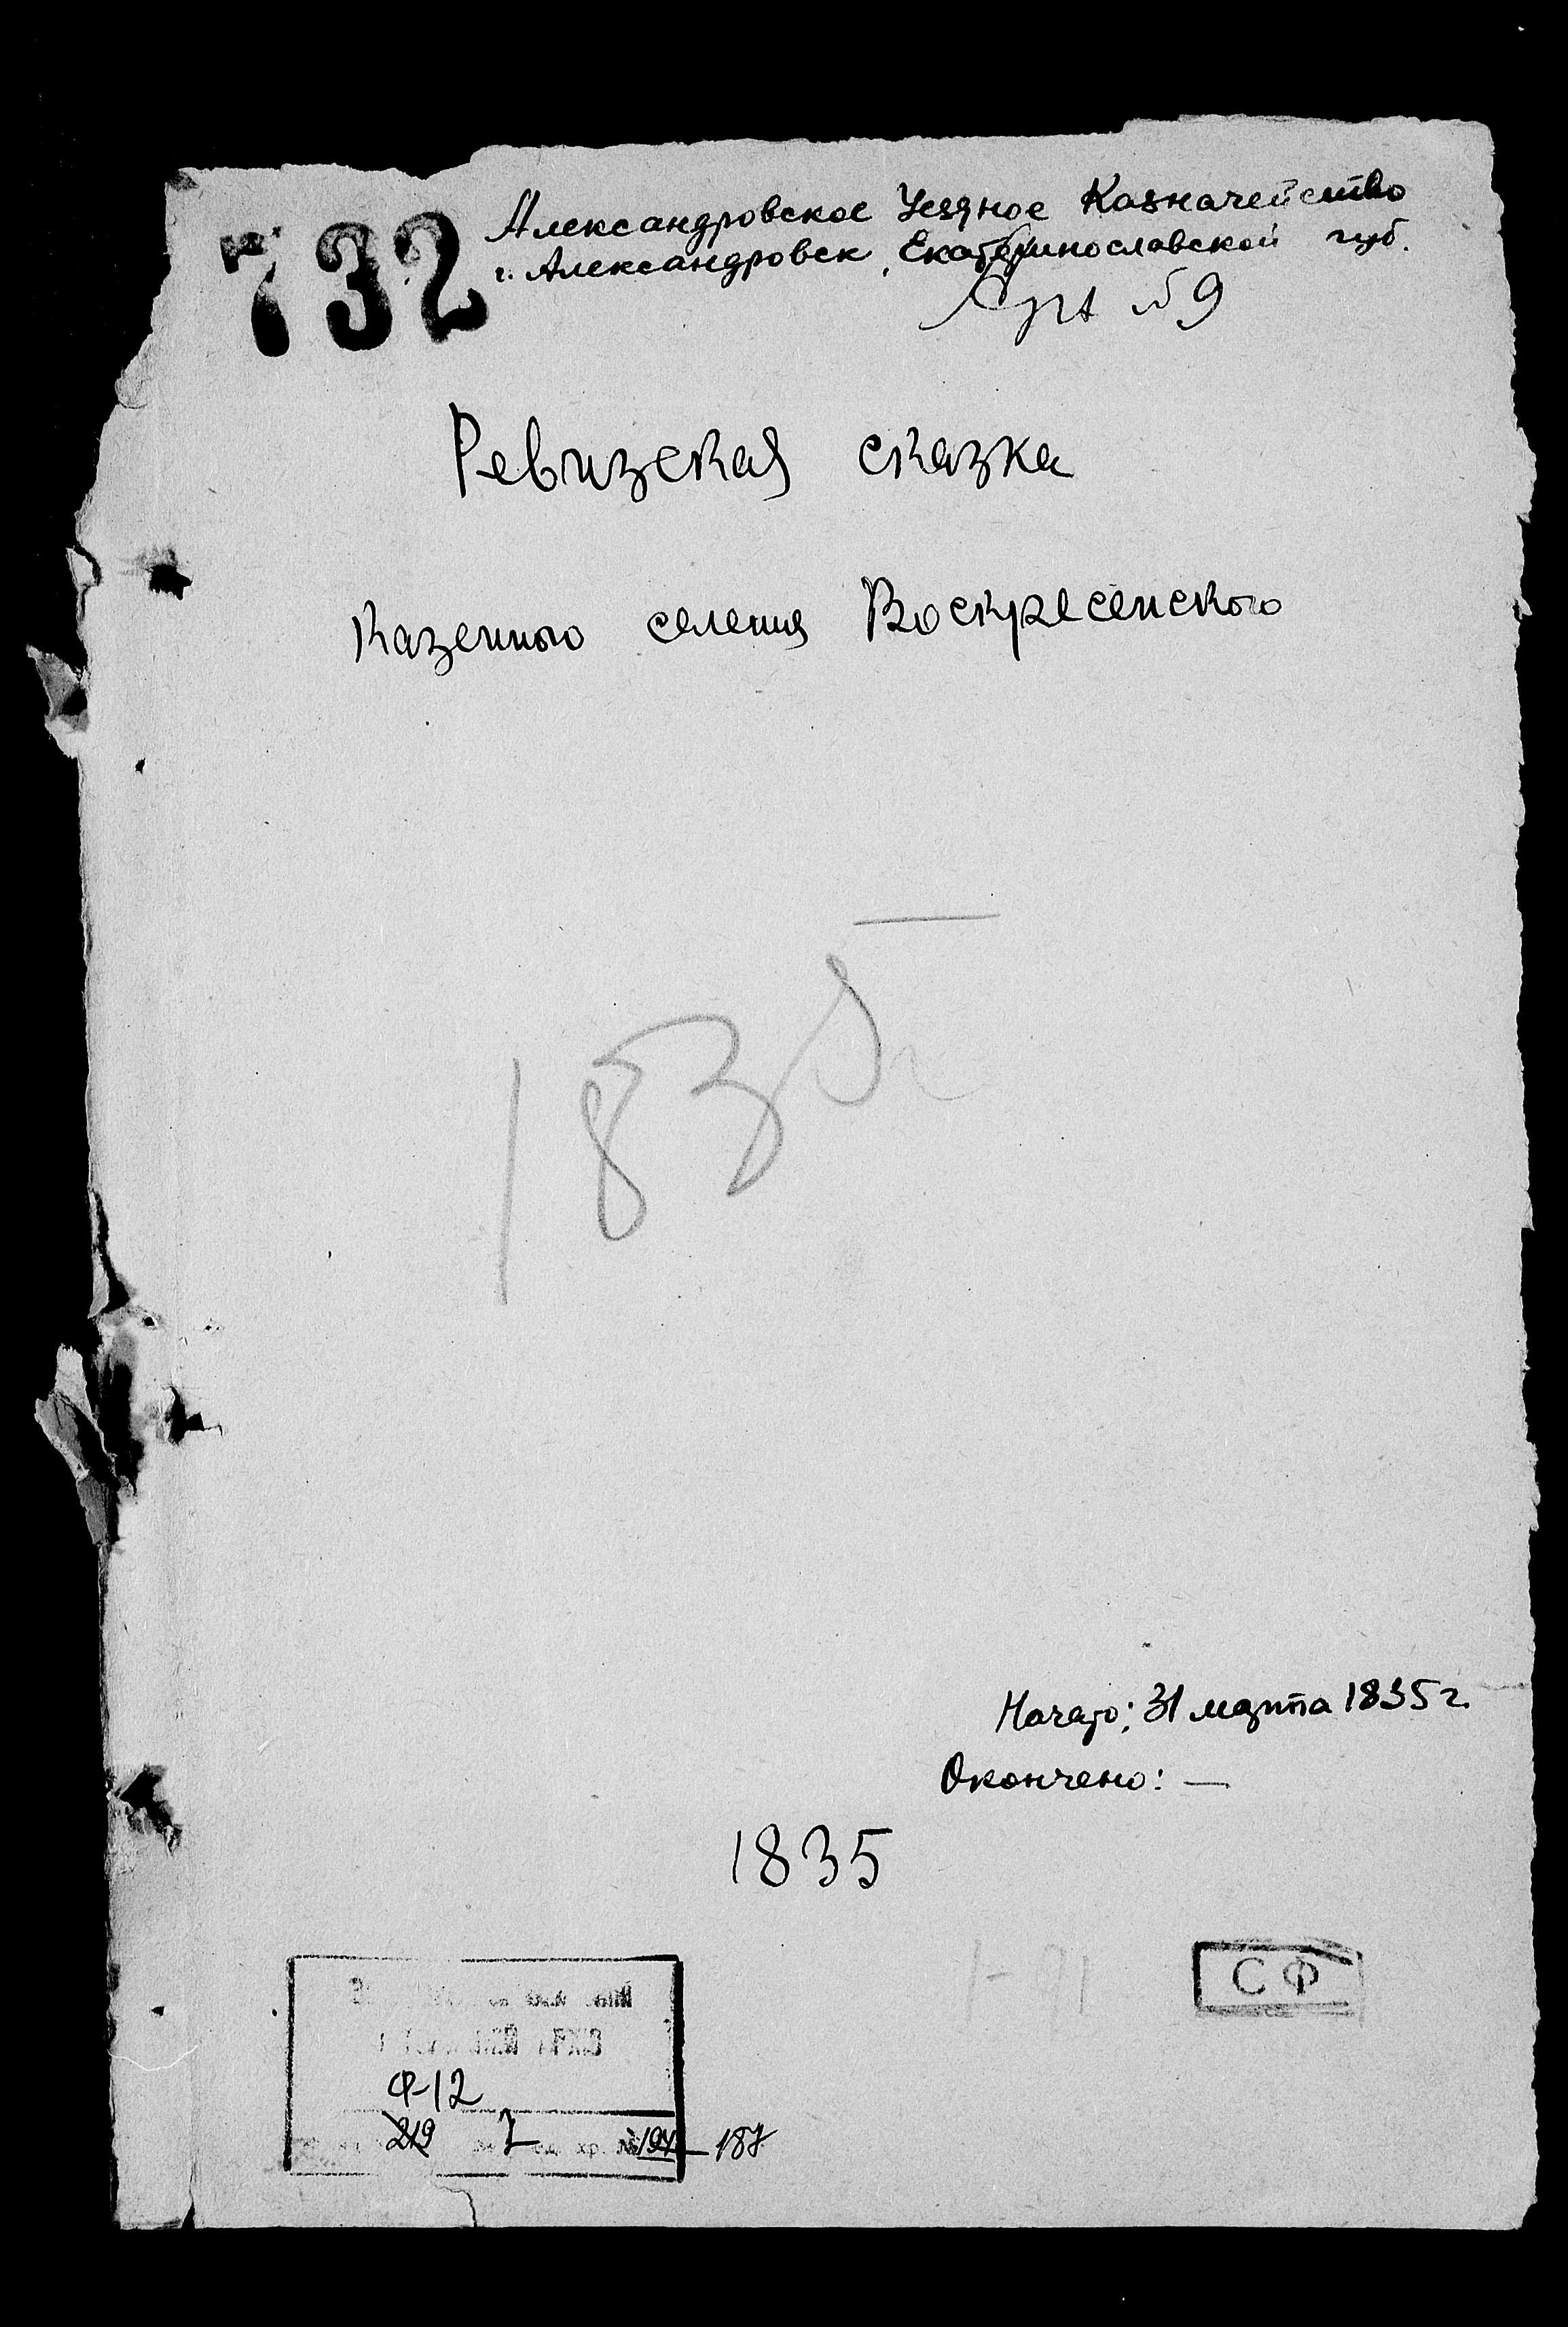 732
Александровское Уездное Казначейство
г. Александровск, Екатеринославской губ.
№ 9
Ревизская сказка
Казенного селения Воскресенского
1835
Начато: 31 марта 1835 г.
Окончено: —
1835
СФ
Ф-12
219 1 194 — 187